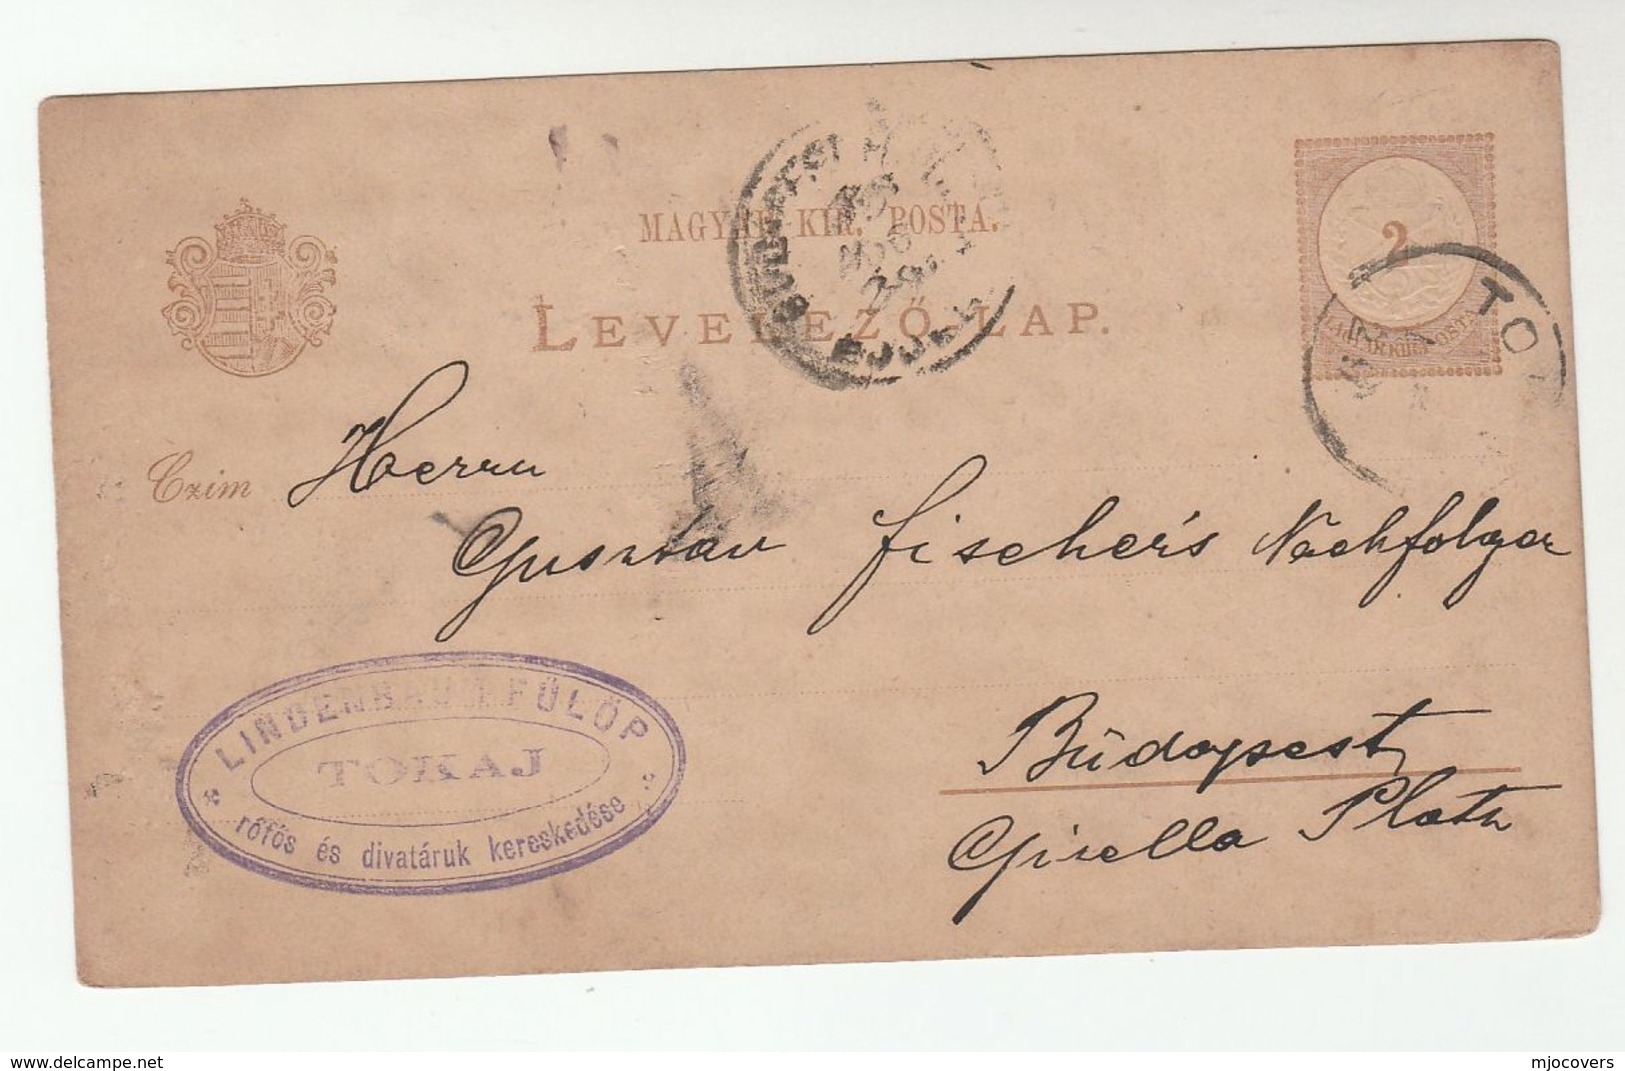 MAGYAR KIR. POSTA.
LEVELEZŐ-LAP.
2
MAGY. KIR. POSTA
TOK
BUDAPEST
ÉJJEL
Czim Herrn
Gusztav Fischer's Nachfolger
Budapest
Gisella Platz
LINDENBAUM FÜLÖP
TOKAJ
rőfös és divatáruk kereskedése
www.delcampe.net
mjocovers